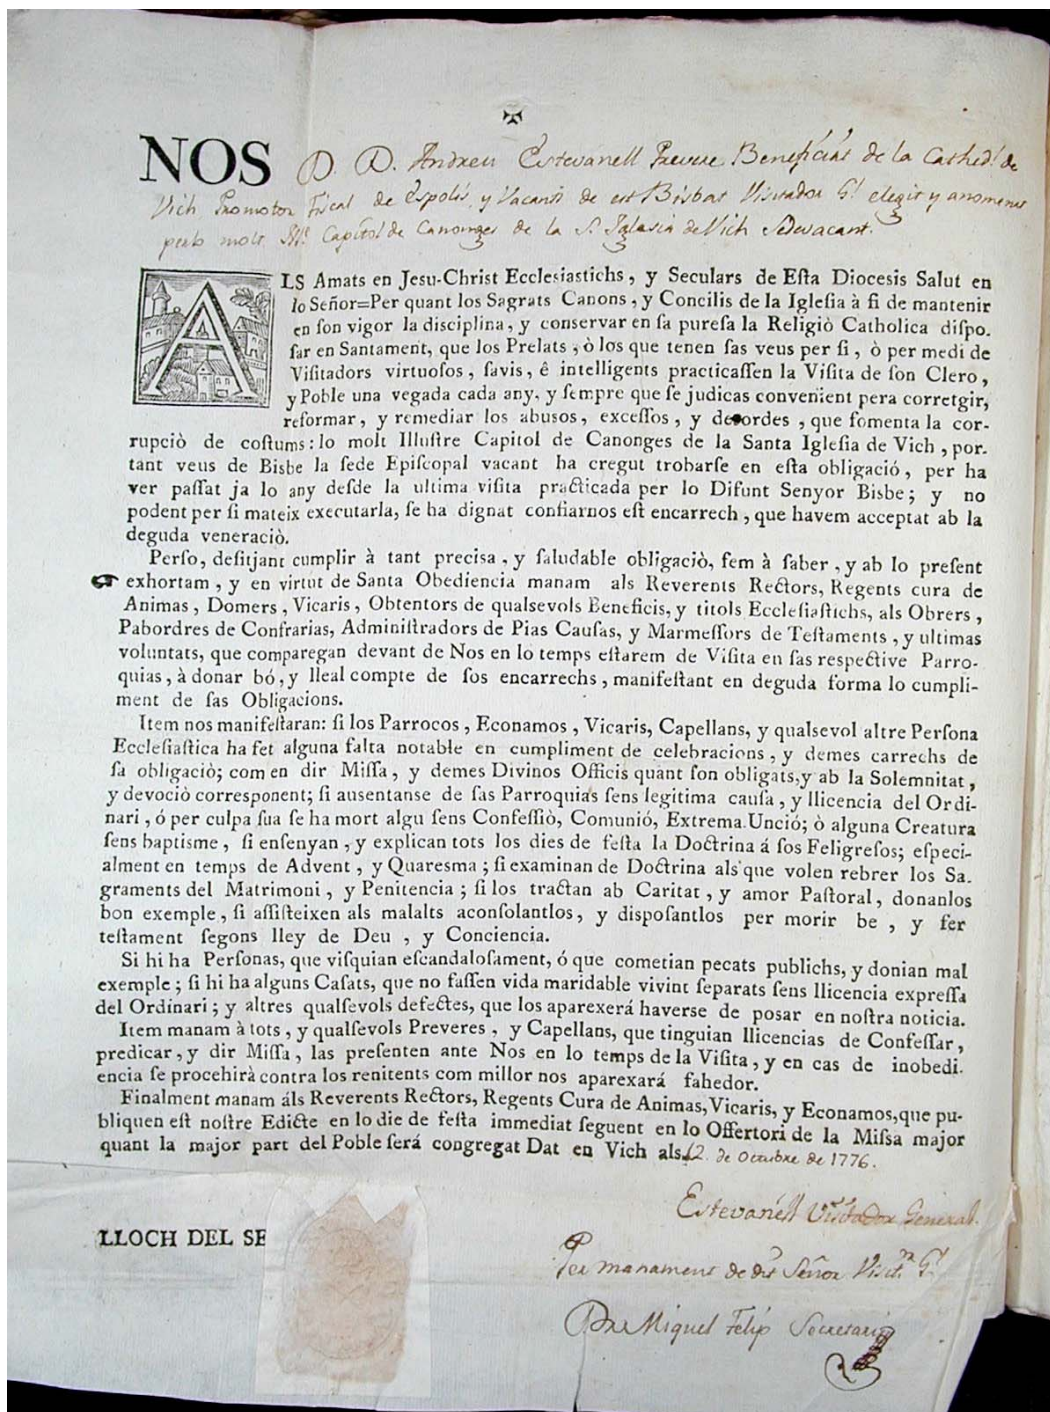 NOS D. D. Andreu Estevanell Prevere Beneficiat de la Cathed.l de
Vich Promotor Fiscal de Espolis, y Vacants de est Bisbat Visitador G.l elegit y anomenat
perlo molt Ill.e Capitol de Canonges de la S.ta Iglesia de Vich Sedevacant.
ALS Amats en Jesu-Christ Ecclesiastichs, y Seculars de Eſta Diocesis Salut en
lo Señor=Per quant los Sagrats Canons, y Concilis de la Igleſia à fi de mantenir
en ſon vigor la disciplina, y conservar en ſa pureſa la Religiò Catholica diſpo.
ſar en Santament, que los Prelats, ò los que tenen ſas veus per ſi, ò per medi de
Viſitadors virtuoſos, ſavis, ê intelligents practicaſſen la Viſita de ſon Clero,
y Poble una vegada cada any, y ſempre que ſe judicas convenient pera corretgir,
reformar, y remediar los abusos, exceſſos, y desordes, que fomenta la cor-
rupciò de coſtums: lo molt Illuſtre Capitol de Canonges de la Santa Igleſia de Vich, por-
tant veus de Bisbe la ſede Epiſcopal vacant ha cregut trobarſe en eſta obligació, per ha
ver paſſat ja lo any deſde la ultima viſita practicada per lo Difunt Senyor Bisbe; y no
podent per ſi mateix executarla, ſe ha dignat confiarnos eſt encarrech, que havem acceptat ab la
deguda veneraciò.
Perſo, deſitjant cumplir à tant preciſa, y ſaludable obligaciò, fem à ſaber, y ab lo preſent
exhortam, y en virtut de Santa Obediencia manam als Reverents Rectors, Regents cura de
Animas, Domers, Vicaris, Obtentors de qualsevols Beneficis, y titols Eccleſiaſtichs, als Obrers,
Pabordres de Confrarias, Adminiſtradors de Pias Cauſas, y Marmeſſors de Teſtaments, y ultimas
voluntats, que comparegan devant de Nos en lo temps eſtarem de Viſita en ſas reſpective Parro-
quias, à donar bó, y lleal compte de ſos encarrechs, manifeſtant en deguda forma lo cumpli-
ment de ſas Obligacions.
Item nos manifeſtaran: ſi los Parrocos, Econamos, Vicaris, Capellans, y qualsevol altre Perſona
Eccleſiaſtica ha fet alguna falta notable en cumpliment de celebracions, y demes carrechs de
ſa obligaciò; com en dir Miſſa, y demes Divinos Officis quant ſon obligats, y ab la Solemnitat,
y devociò corresponent; ſi ausentanse de ſas Parroquias ſens legitima cauſa, y llicencia del Ordi-
nari, ó per culpa ſua ſe ha mort algu ſens Confeſſiò, Comunió, Extrema.Unció; ò alguna Creatura
ſens baptisme, ſi enſenyan, y explican tots los dies de feſta la Doctrina á ſos Feligreſos; eſpeci-
alment en temps de Advent, y Quaresma; ſi examinan de Doctrina als que volen rebrer los Sa.
graments del Matrimoni, y Penitencia; ſi los tractan ab Caritat, y amor Paſtoral, donanlos
bon exemple, ſi aſſiſteixen als malalts aconſolantlos, y dispoſantlos per morir be, y fer
teſtament ſegons lley de Deu, y Conciencia.
Si hi ha Perſonas, que viſquian eſcandaloſament, ó que cometian pecats publichs, y donian mal
exemple; ſi hi ha alguns Caſats, que no faſſen vida maridable vivint ſeparats ſens llicencia expreſſa
del Ordinari; y altres qualſevols defectes, que los aparexerá haverse de posar en noſtra noticia.
Item manam à tots, y qualſevols Preveres, y Capellans, que tinguian llicencias de Confeſſar,
predicar, y dir Miſſa, las preſenten ante Nos en lo temps de la Viſita, y en cas de inobedi.
encia ſe procehirà contra los renitents com millor nos aparexará fahedor.
Finalment manam áls Reverents Rectors, Regents Cura de Animas, Vicaris, y Econamos, que pu-
bliquen eſt noſtre Edicte en lo die de feſta immediat ſeguent en lo Offertori de la Miſsa major
quant la major part del Poble ſerá congregat Dat en Vich als 12. de Octubre de 1776.
Estevanéll Visitador General.
LLOCH DEL SE
Per manament de dit Señor Visit.or G.l
Miquel Felip Secretari